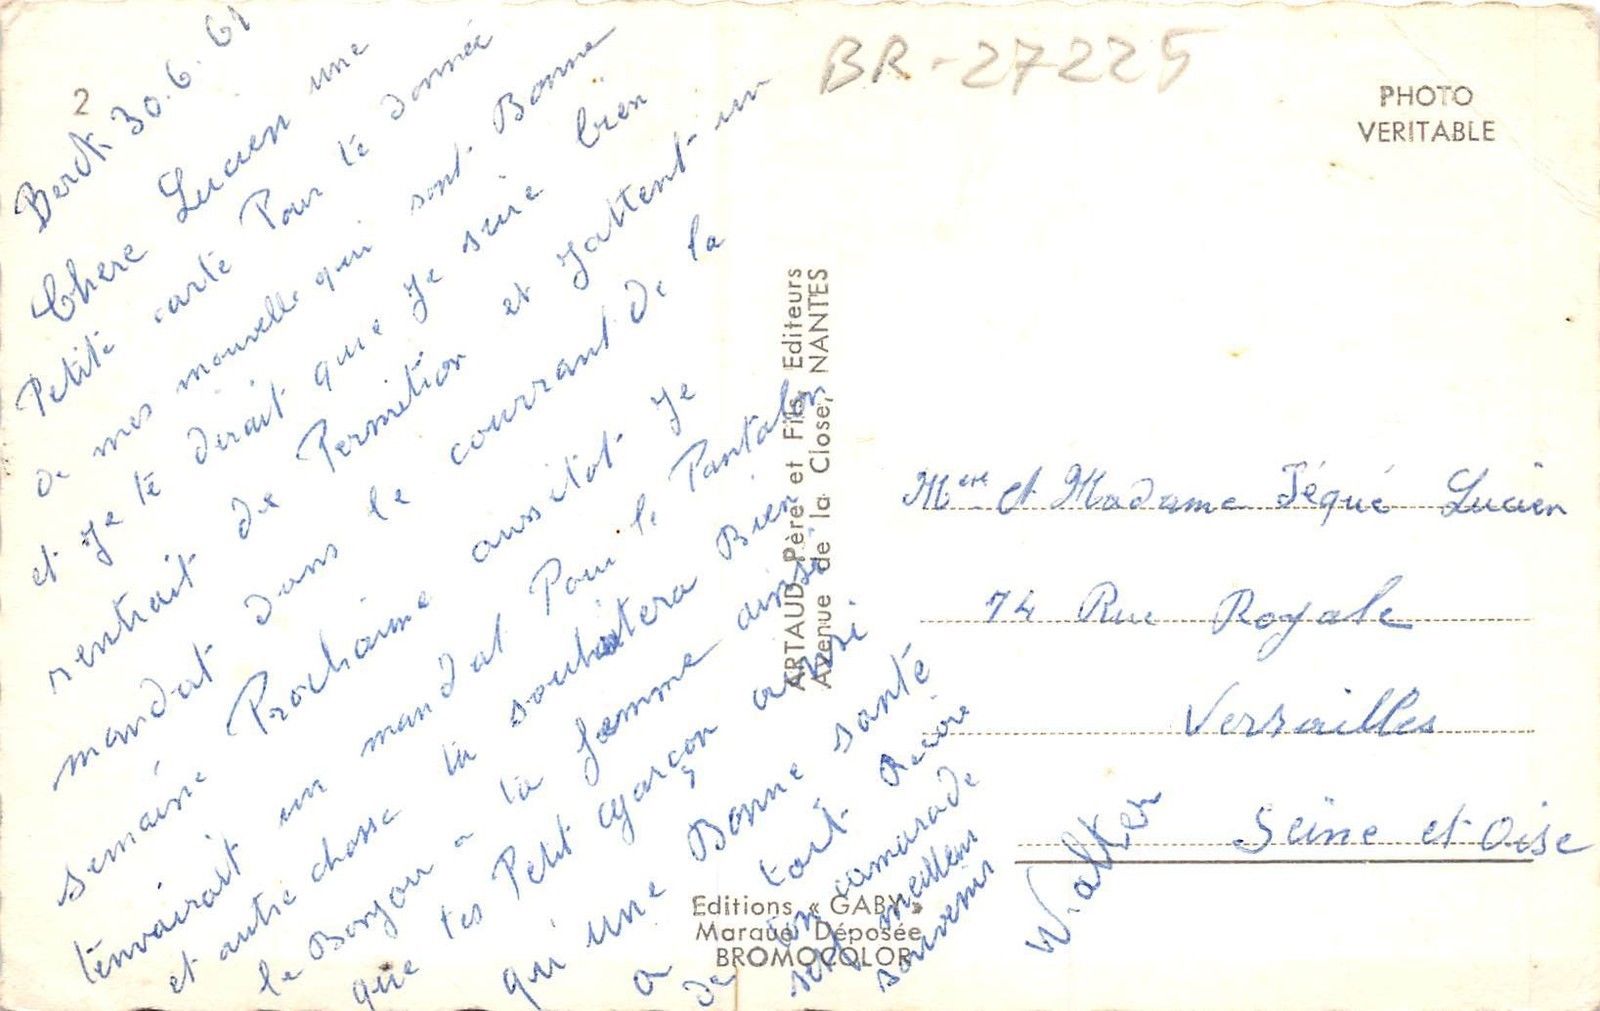 BR-27225
PHOTO
VERITABLE
2
Berck 30.6.61
Chere Lucien une
Petite carte Pour te donnée
de mes nouvelle qui sont Bonne
et je te dirait que je suis bien
rentrait de Permition et j'attent un
mandat dans le courrant de la
semaine Prochaine aussitot je
t'envairait un mandat Pour le Pantalon
et autre chosse tu souhaitera Bien
le Bonjou a ta femme ainsi
que tes Petit garçon aussi
qu'une Bonne santé
a tout Recoie
de ton camarade
ses meilleur
souvenir
Walter
ARTAUD Père et Fils, Editeurs
Avenue de la Close, NANTES
Editions « GABY »
Marque Déposée
BROMOCOLOR
Mere et Madame Téqué Lucien
74 Rue Royale
Versailles
Seine et Oise